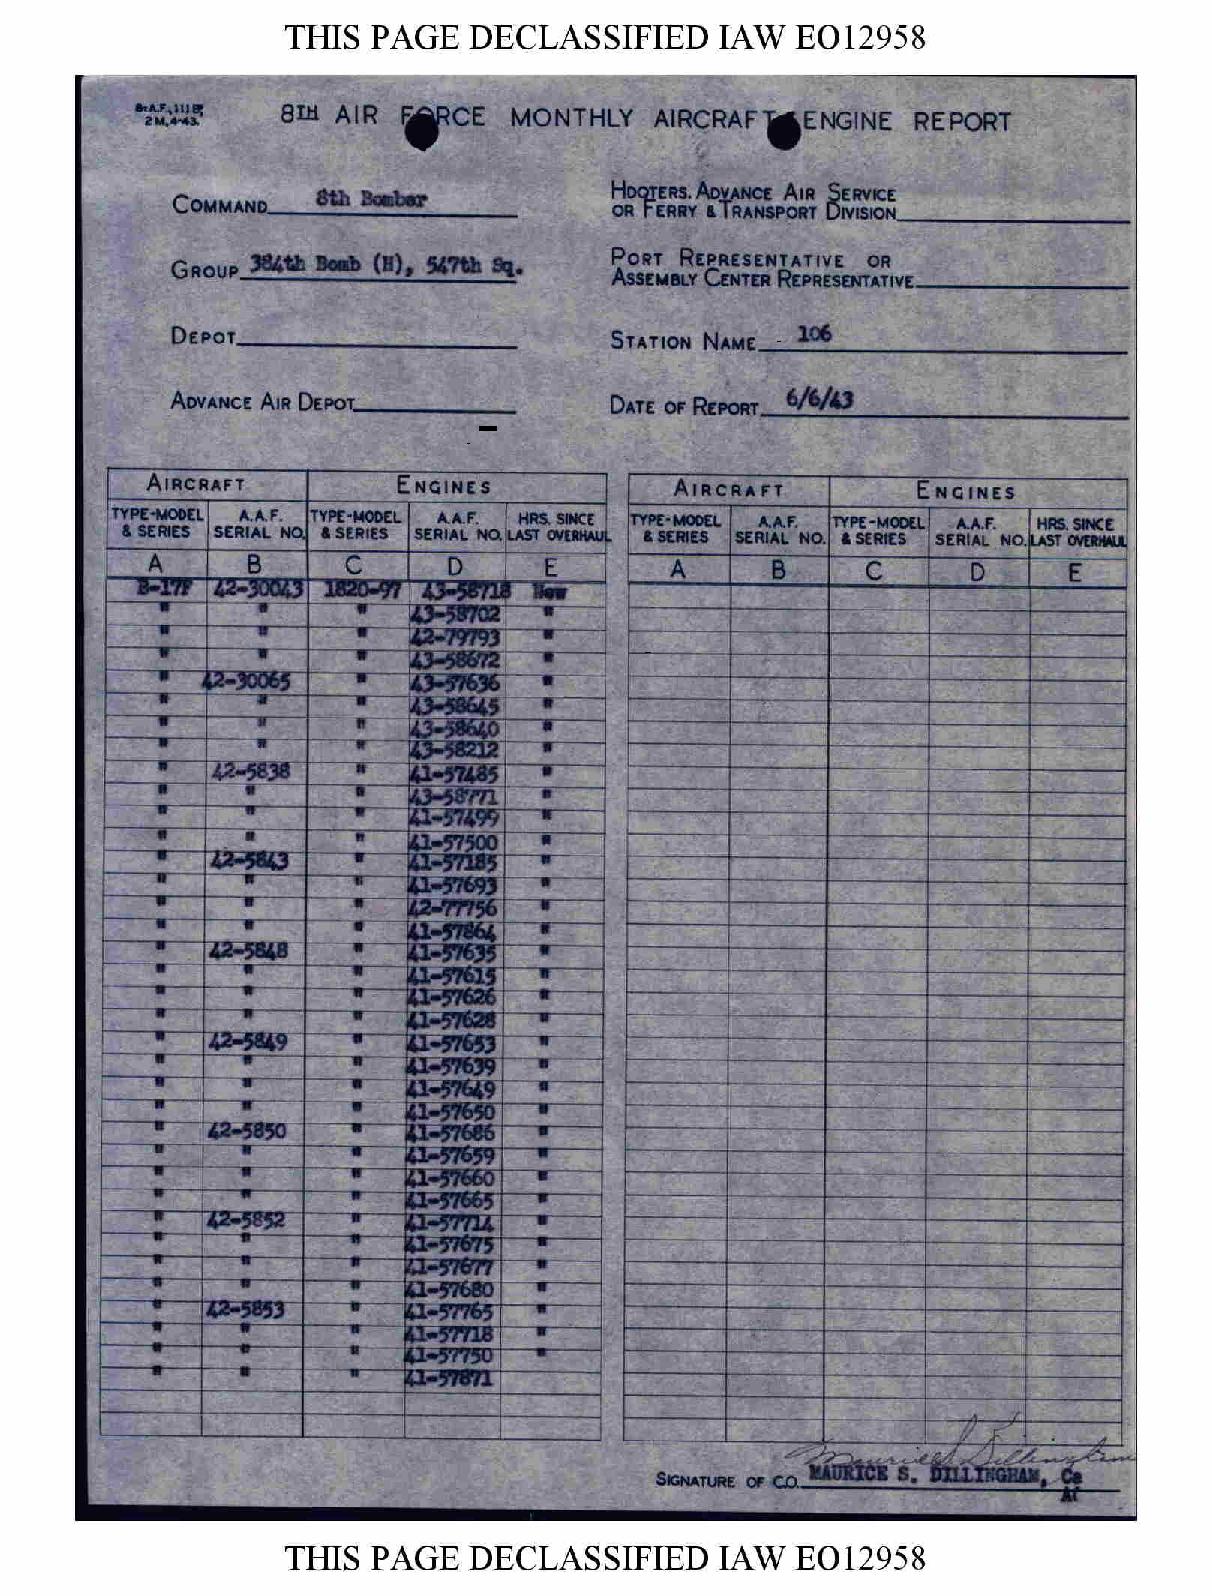 THIS PAGE DECLASSIFIED IAW EO12958
8TH A.F., 111B,
2M, 4-43.
8TH AIR FORCE MONTHLY AIRCRAFT ENGINE REPORT
COMMAND 8th Bomber
HDQTERS. ADVANCE AIR SERVICE
OR FERRY & TRANSPORT DIVISION
GROUP 384th Bomb (H), 547th Sq.
PORT REPRESENTATIVE OR
ASSEMBLY CENTER REPRESENTATIVE
DEPOT
STATION NAME - 106
ADVANCE AIR DEPOT
DATE OF REPORT 6/6/43
AIRCRAFT ENGINES AIRCRAFT ENGINES
TYPE-MODEL & SERIES A.A.F. SERIAL NO. TYPE-MODEL & SERIES A.A.F. SERIAL NO. HRS. SINCE LAST OVERHAUL TYPE-MODEL & SERIES A.A.F. SERIAL NO. TYPE-MODEL & SERIES A.A.F. SERIAL NO. HRS. SINCE LAST OVERHAUL
A B C D E A B C D E
B-17F 42-30043 1820-97 43-58718 New
" " " 43-58702 "
" " " 42-79793 "
" " " 43-58672 "
" 42-30065 " 43-57636 "
" " " 43-58645 "
" " " 43-58640 "
" " " 43-58212 "
" 42-5838 " 41-57485 "
" " " 43-58771 "
" " " 41-57499 "
" " " 41-57500 "
" 42-5843 " 41-57185 "
" " " 41-57693 "
" " " 42-77756 "
" " " 41-57864 "
" 42-5848 " 41-57635 "
" " " 41-57615 "
" " " 41-57626 "
" " " 41-57628 "
" 42-5849 " 41-57653 "
" " " 41-57639 "
" " " 41-57649 "
" " " 41-57650 "
" 42-5850 " 41-57686 "
" " " 41-57659 "
" " " 41-57660 "
" " " 41-57665 "
" 42-5852 " 41-57714 "
" " " 41-57675 "
" " " 41-57677 "
" " " 41-57680 "
" 42-5853 " 41-57765 "
" " " 41-57718 "
" " " 41-57750 "
" " " 41-57871
Maurice S Dillingham
SIGNATURE OF C.O. MAURICE S. DILLINGHAM, Ca
THIS PAGE DECLASSIFIED IAW EO12958